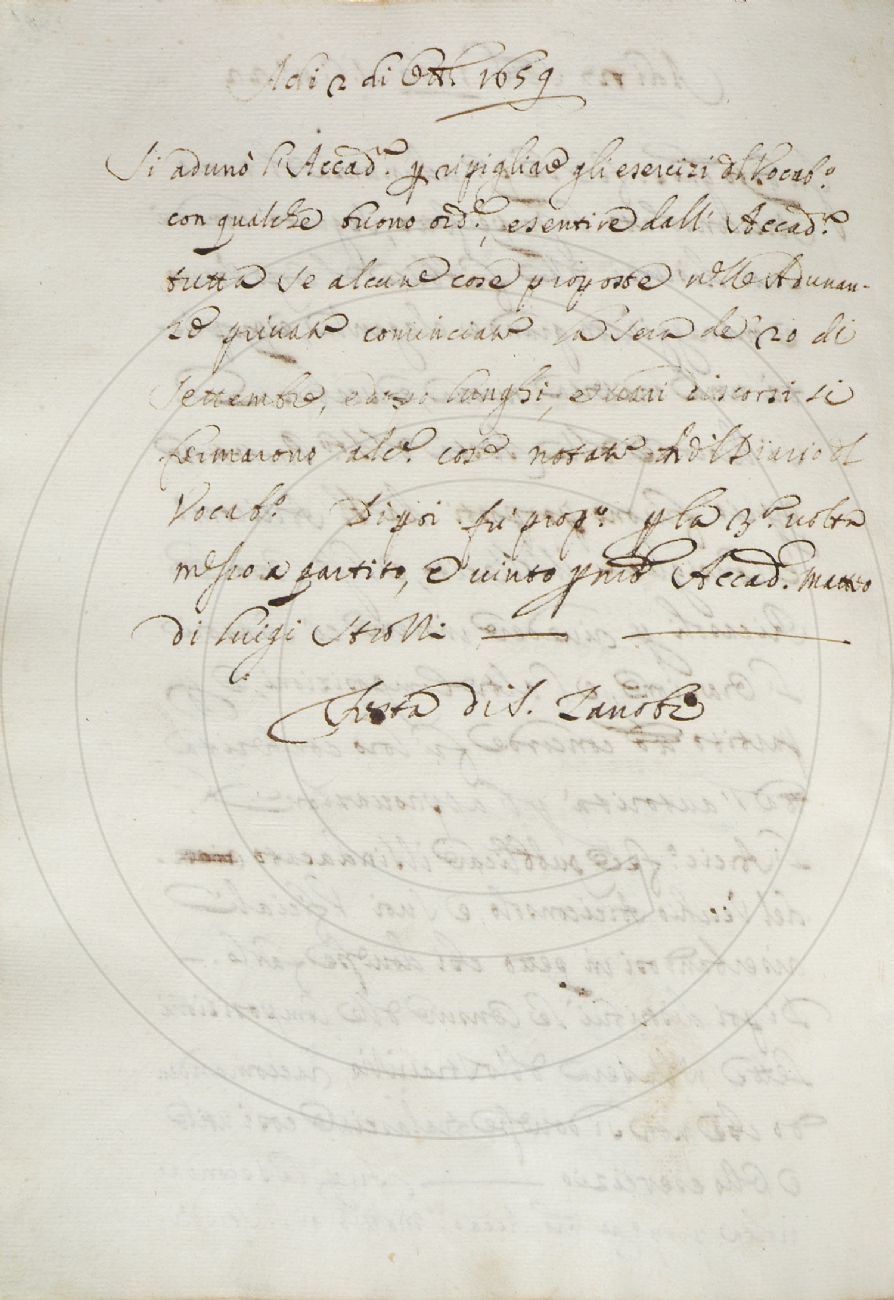 Adi 2 di Ottb. 1659
Si adunò l'Accad.ª p ripigliare gli esercizi del Vocab.º
con qualche buono ord.e, e sentire dall' Accad.ª
tutta se alcune cose proposte nelle Adunan-
ze private cominciate la sera de' 20 di
Settembre, e dopo lunghi, e discorsi si
fermarono alc.e cose notate nel Diario del
Vocab.º Dipoi fù prop.º p la 3.ª volta
messo a partito, e vinto p Accad. Matteo
di Luigi Strozzi
Festa di S. Zanobi